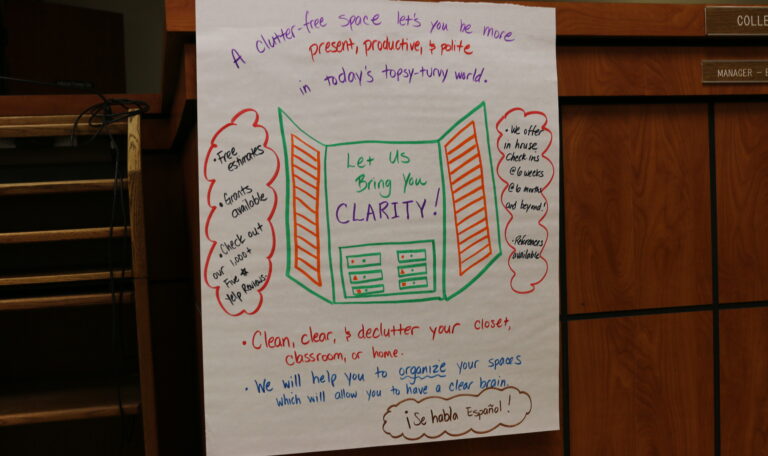 A clutter-free space let's you be more
present, productive, & polite
in today's topsy-turvy world.
• Free
estimates
• Grants
available
• Check out
our 1,000+
Five ★
Yelp Reviews.
Let Us
Bring You
CLARITY!
• We offer
in house
check ins
@6 weeks
@6 months
and beyond!
• References
available
• Clean, clear, & declutter your closet,
classroom, or home.
• We will help you to organize your spaces
which will allow you to have a clear brain.
¡Se habla Español!
COLLE
MANAGER - E